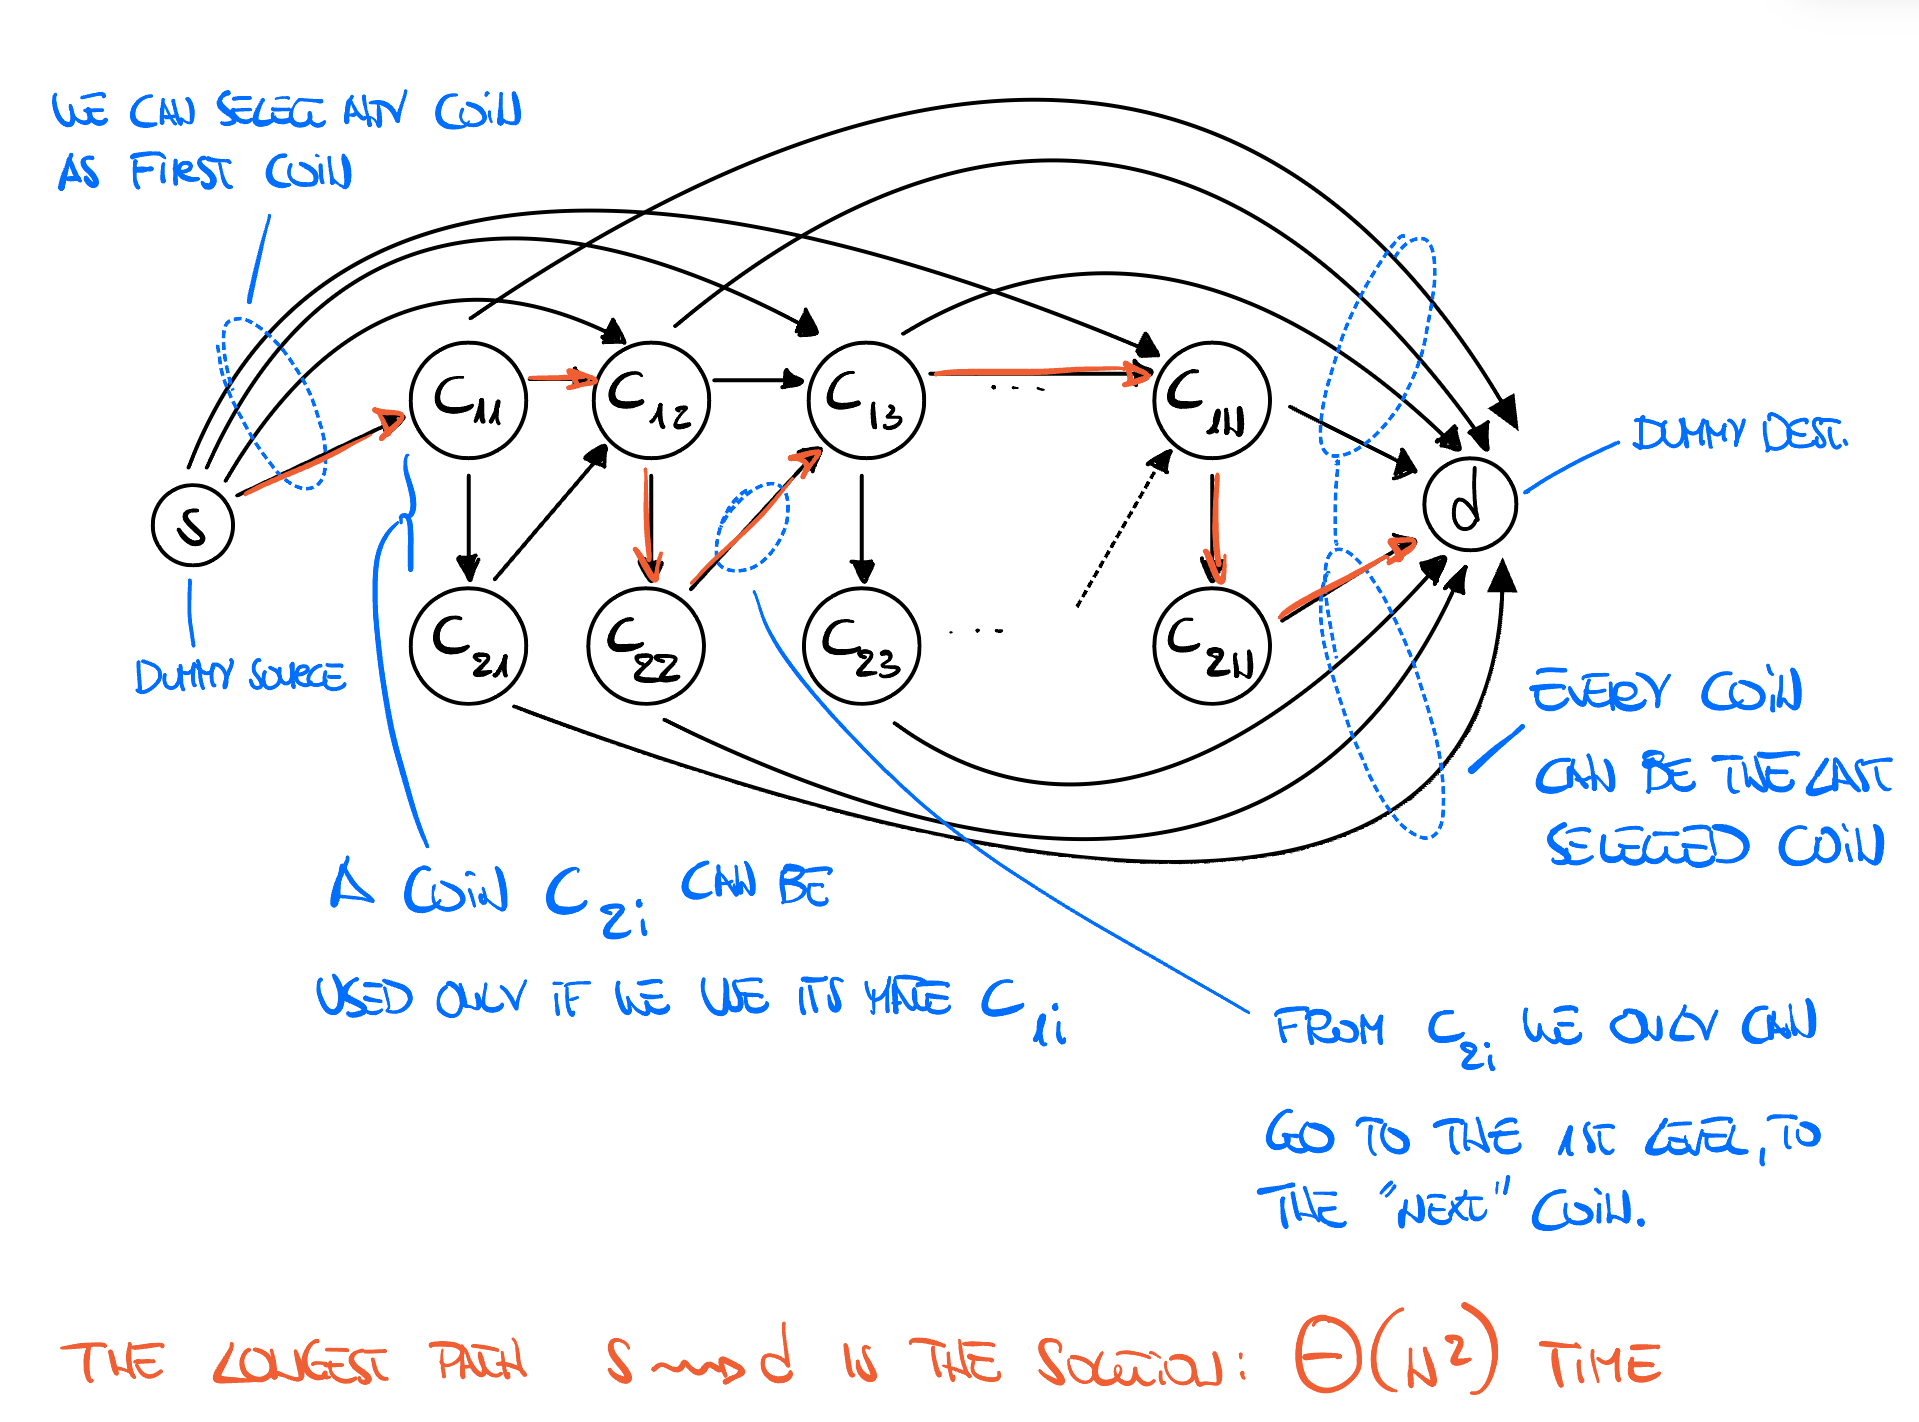 WE CAN SELECT ANY COIN
AS FIRST COIN
C11
C12
C13
...
C1N
S
d
DUMMY DEST.
DUMMY SOURCE
C21
C22
C23
...
C2N
EVERY COIN
CAN BE THE LAST
SELECTED COIN
A COIN C2i CAN BE
USED ONLY IF WE USE ITS MATE C1i
FROM C2i WE ONLY CAN
GO TO THE 1ST LEVEL, TO
THE "NEXT" COIN.
THE LONGEST PATH S ⇝ d IS THE SOLUTION: Θ(N²) TIME